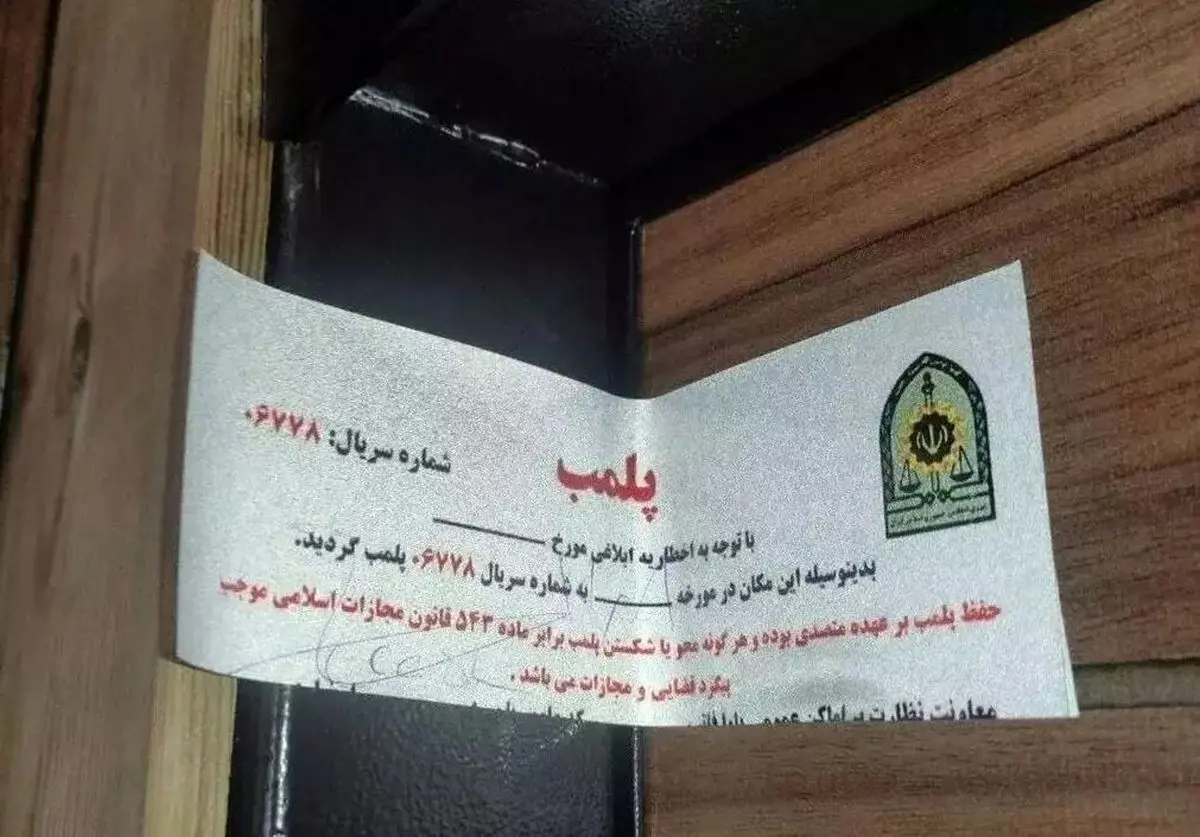 پلمب
شماره سریال: ۰۶۷۷۸
با توجه به اخطاریه ابلاغی مورخ
بدینوسیله این مکان در مورخه ــــــ به شماره سریال ۰۶۷۷۸ پلمب گردید.
حفظ پلمب بر عهده متصدی بوده و هر گونه محو یا شکستن پلمب برابر ماده ۵۴۳ قانون مجازات اسلامی موجب
پیگرد قضایی و مجازات می باشد.
معاونت نظارت بر اماکن عمومی